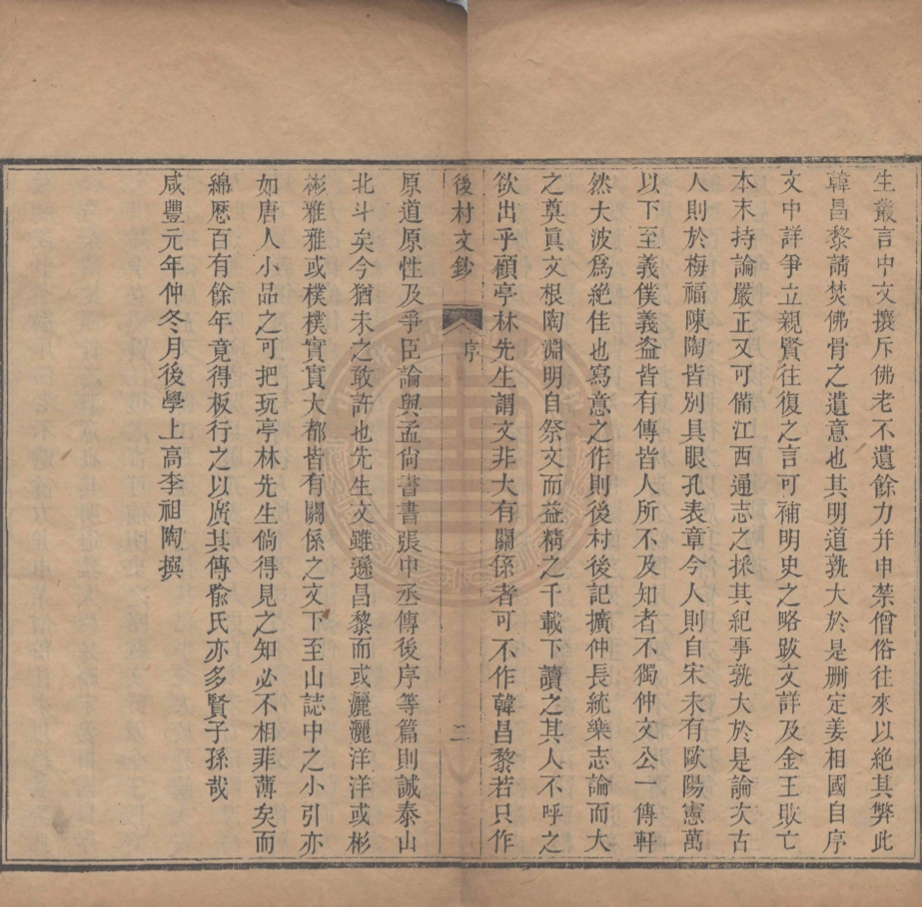 生叢言中文攘斥佛老不遺餘力幷申禁僧俗往來以絕其弊此
韓昌黎請焚佛骨之遺意也其明道孰大於是刪定姜相國自序
文中詳爭立親賢往復之言可補明史之略跋文詳及金王敗亡
本末持論嚴正又可備江西通志之採其紀事孰大於是論次古
人則於梅福陳陶皆別具眼孔表章今人則自宋未有歐陽憲萬
以下至義僕義盗皆有傳皆人所不及知者不獨仲文公一傳軒
然大波爲絕佳也寫意之作則後村後記擴仲長統樂志論而大
之奠眞文根陶淵明自祭文而益精之千載下讀之其人不呼之
欲出乎顧亭林先生謂文非大有關係者可不作韓昌黎若只作
後村文鈔 序 二
原道原性及爭臣論與孟尙書書張中丞傳後序等篇則誠泰山
北斗矣今猶未之敢許也先生文雖遜昌黎而或灑灑洋洋或彬
彬雅雅或樸樸實實大都皆有關係之文下至山誌中之小引亦
如唐人小品之可把玩亭林先生倘得見之知必不相菲薄矣而
綿厯百有餘年竟得板行之以廣其傳喩氏亦多賢子孫哉
咸豐元年仲冬月後學上高李祖陶撰